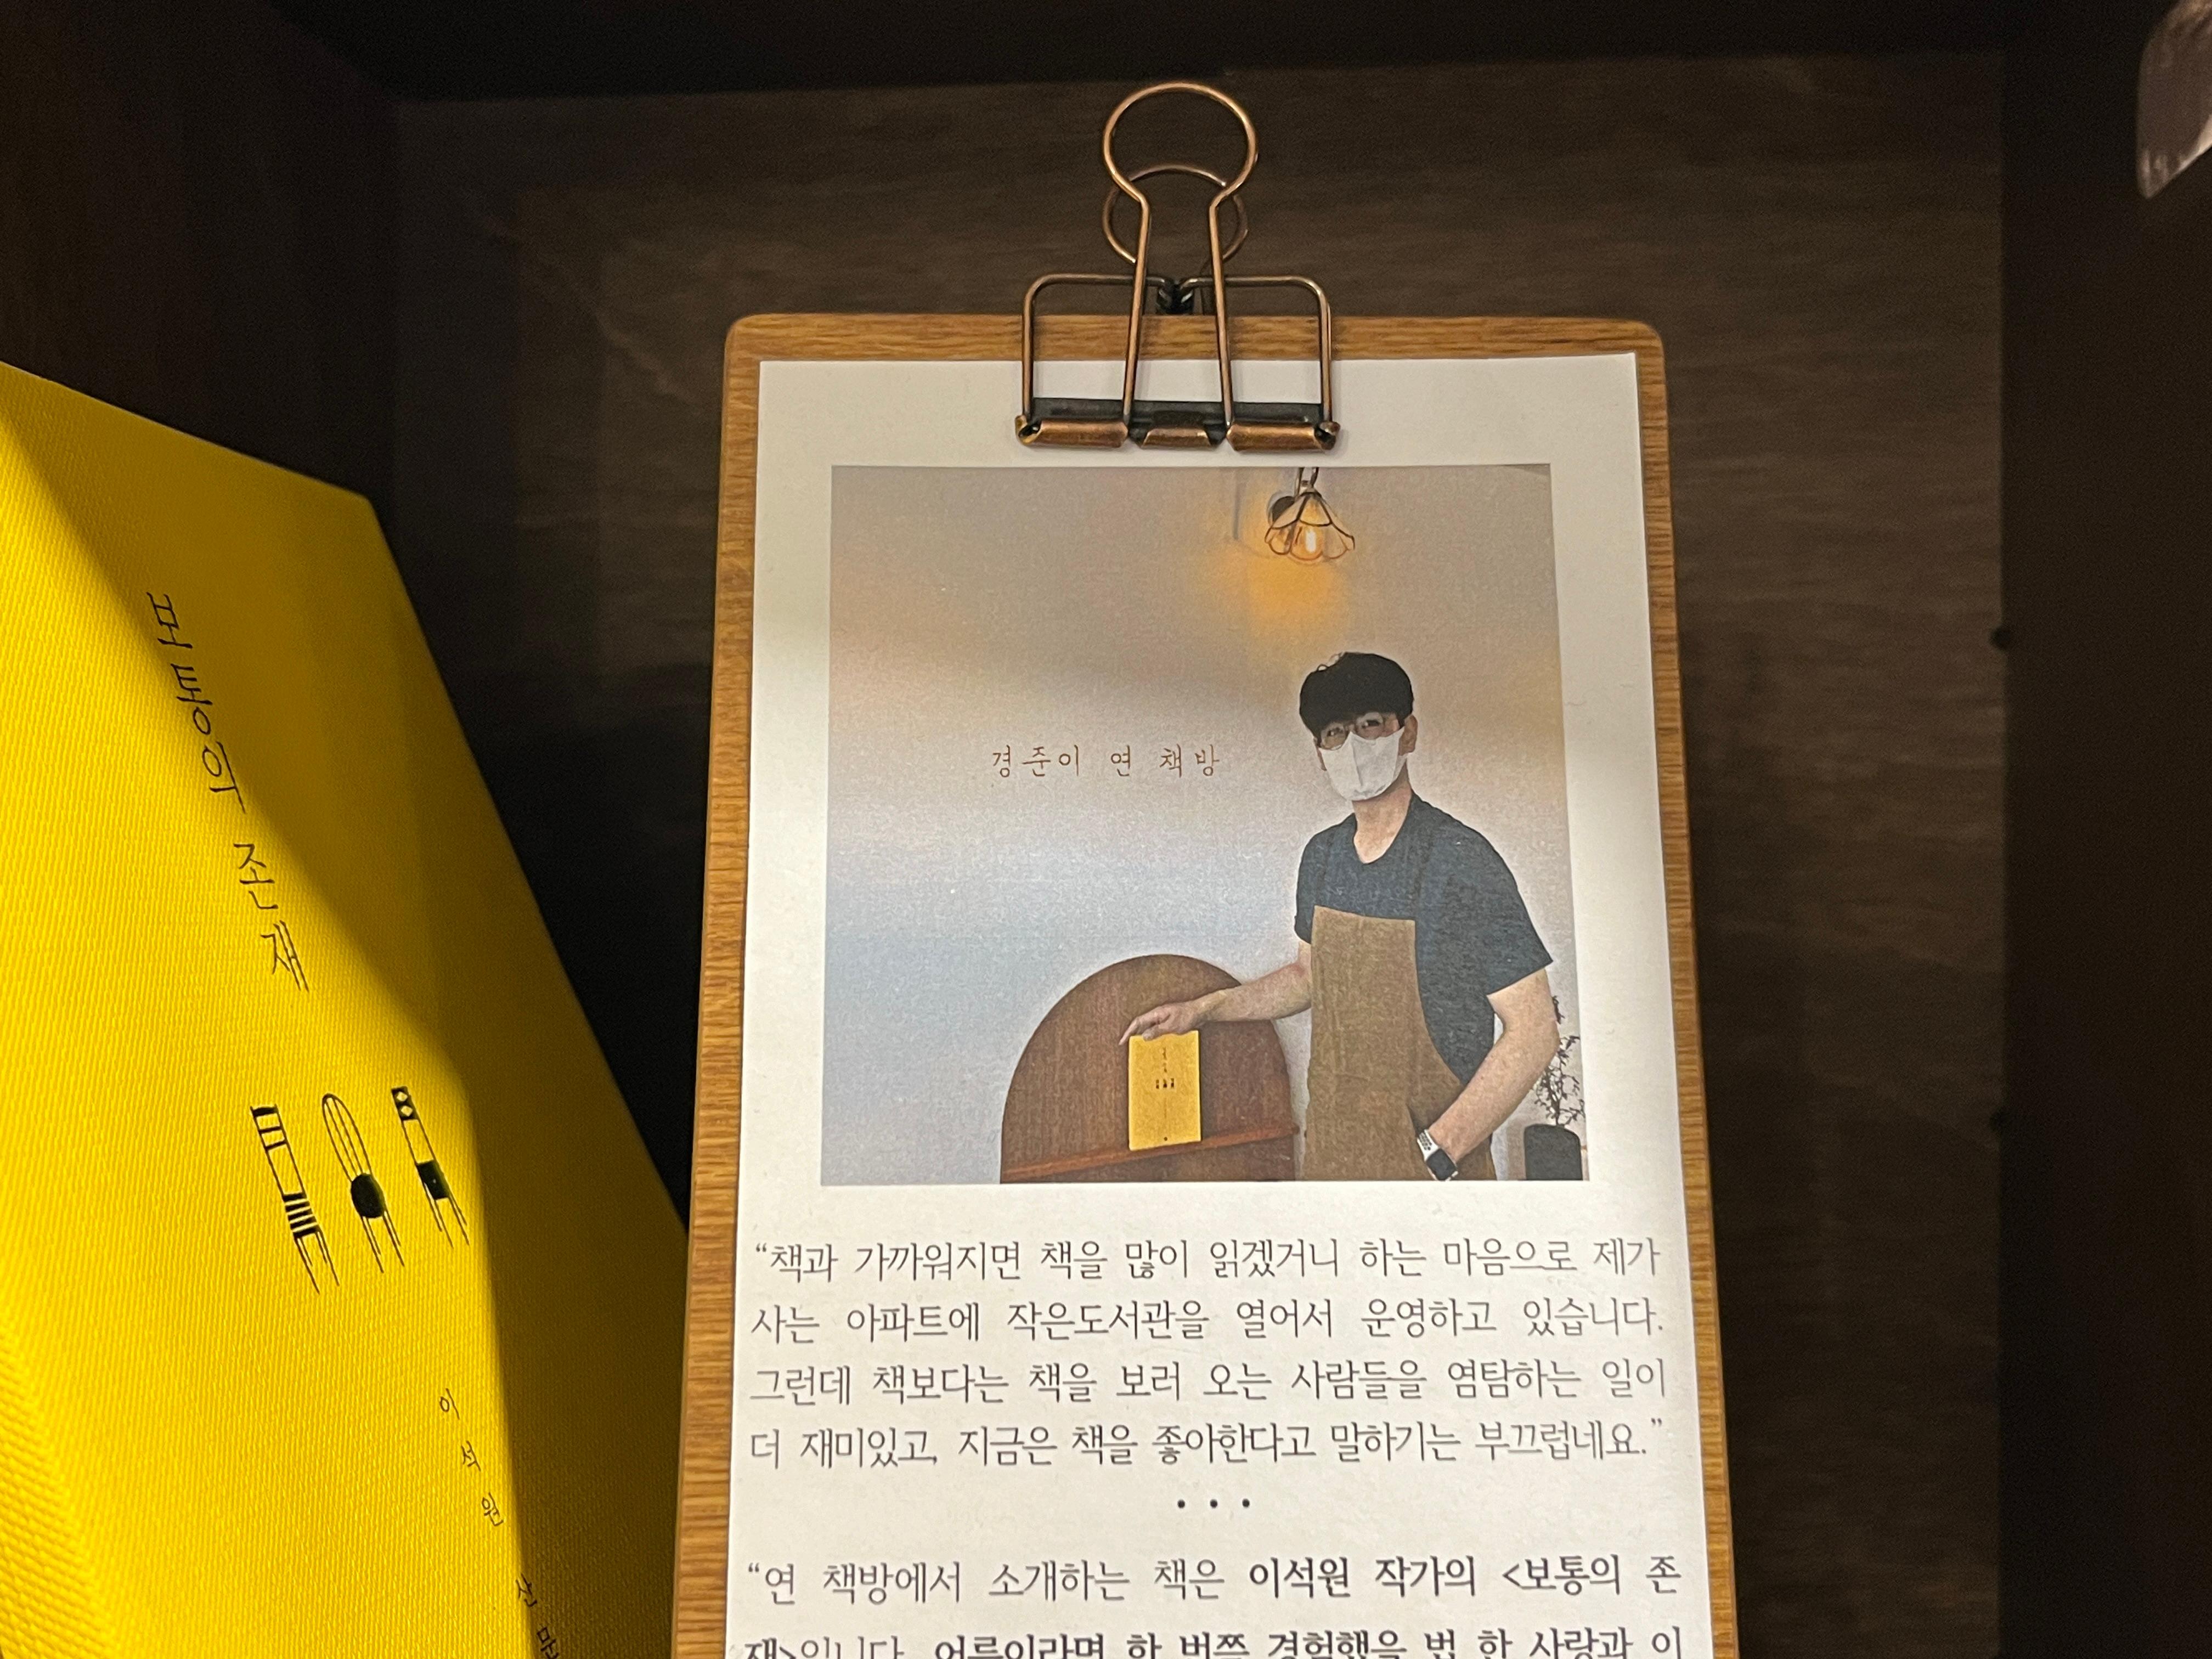 보통의 존재
이석원 산문
경준이 연 책방
“책과 가까워지면 책을 많이 읽겠거니 하는 마음으로 제가
사는 아파트에 작은도서관을 열어서 운영하고 있습니다.
그런데 책보다는 책을 보러 오는 사람들을 염탐하는 일이
더 재미있고, 지금은 책을 좋아한다고 말하기는 부끄럽네요.”
• • •
“연 책방에서 소개하는 책은 이석원 작가의 <보통의 존
재>입니다. 어른이라면 한 번쯤 경험했을 법 한 사랑과 이